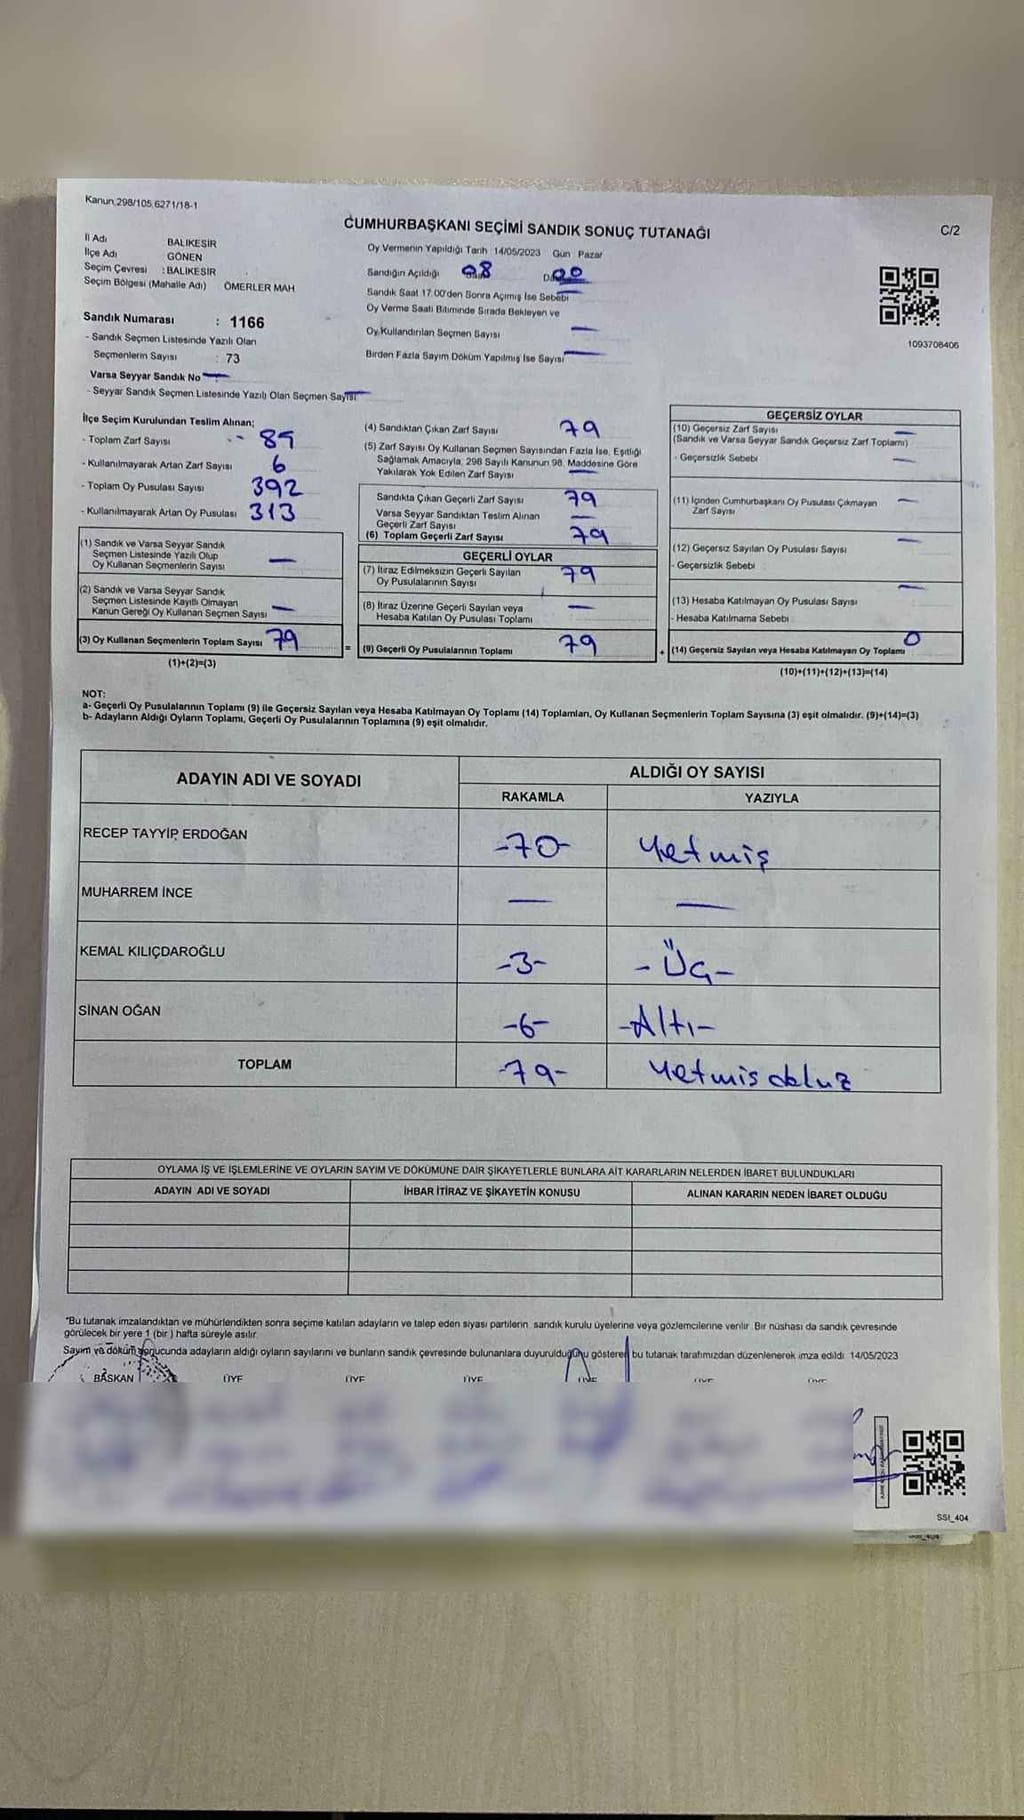 Kanun,298/105,6271/18-1
CUMHURBAŞKANI SEÇİMİ SANDIK SONUÇ TUTANAĞI
C/2
İl Adı BALIKESİR
İlçe Adı GÖNEN
Seçim Çevresi : BALIKESİR
Seçim Bölgesi (Mahalle Adı) ÖMERLER MAH
Sandık Numarası : 1166
- Sandık Seçmen Listesinde Yazılı Olan
Seçmenlerin Sayısı : 73
Varsa Seyyar Sandık No —
- Seyyar Sandık Seçmen Listesinde Yazılı Olan Seçmen Sayısı —
Oy Vermenin Yapıldığı Tarih 14/05/2023 Gün Pazar
Sandığın Açıldığı 08 00
Sandık Saat 17:00'den Sonra Açımış İse Sebebi —
Oy Verme Saati Bitiminde Sırada Bekleyen ve
Oy Kullandırılan Seçmen Sayısı —
Birden Fazla Sayım Döküm Yapılmış İse Sayısı —
1093708406
İlçe Seçim Kurulundan Teslim Alınan;
- Toplam Zarf Sayısı 85
- Kullanılmayarak Artan Zarf Sayısı 6
- Toplam Oy Pusulası Sayısı 392
- Kullanılmayarak Artan Oy Pusulası 313
(1) Sandık ve Varsa Seyyar Sandık
Seçmen Listesinde Yazılı Olup
Oy Kullanan Seçmenlerin Sayısı —
(2) Sandık ve Varsa Seyyar Sandık
Seçmen Listesinde Kayıtlı Olmayan
Kanun Gereği Oy Kullanan Seçmen Sayısı —
(3) Oy Kullanan Seçmenlerin Toplam Sayısı 79
(1)+(2)=(3)
(4) Sandıktan Çıkan Zarf Sayısı 79
(5) Zarf Sayısı Oy Kullanan Seçmen Sayısından Fazla İse, Eşitliği
Sağlamak Amacıyla, 298 Sayılı Kanunun 98. Maddesine Göre
Yakılarak Yok Edilen Zarf Sayısı —
Sandıkta Çıkan Geçerli Zarf Sayısı 79
Varsa Seyyar Sandıktan Teslim Alınan
Geçerli Zarf Sayısı —
(6) Toplam Geçerli Zarf Sayısı 79
GEÇERLİ OYLAR
(7) İtiraz Edilmeksizin Geçerli Sayılan
Oy Pusulalarının Sayısı 79
(8) İtiraz Üzerine Geçerli Sayılan veya
Hesaba Katılan Oy Pusulası Toplamı —
= (9) Geçerli Oy Pusulalarının Toplamı 79
GEÇERSİZ OYLAR
(10) Geçersiz Zarf Sayısı —
(Sandık ve Varsa Seyyar Sandık Geçersiz Zarf Toplamı)
- Geçersizlik Sebebi —
(11) İçinden Cumhurbaşkanı Oy Pusulası Çıkmayan —
Zarf Sayısı
(12) Geçersiz Sayılan Oy Pusulası Sayısı —
- Geçersizlik Sebebi
(13) Hesaba Katılmayan Oy Pusulası Sayısı —
- Hesaba Katılmama Sebebi
+ (14) Geçersiz Sayılan veya Hesaba Katılmayan Oy Toplamı 0
(10)+(11)+(12)+(13)=(14)
NOT:
a- Geçerli Oy Pusulalarının Toplamı (9) ile Geçersiz Sayılan veya Hesaba Katılmayan Oy Toplamı (14) Toplamları, Oy Kullanan Seçmenlerin Toplam Sayısına (3) eşit olmalıdır. (9)+(14)=(3)
b- Adayların Aldığı Oyların Toplamı, Geçerli Oy Pusulalarının Toplamına (9) eşit olmalıdır.
ADAYIN ADI VE SOYADI ALDIĞI OY SAYISI
RAKAMLA YAZIYLA
RECEP TAYYİP ERDOĞAN -70- Yetmiş
MUHARREM İNCE — —
KEMAL KILIÇDAROĞLU -3- -Üç-
SİNAN OĞAN -6- -Altı-
TOPLAM -79- Yetmiş dokuz
OYLAMA İŞ VE İŞLEMLERİNE VE OYLARIN SAYIM VE DÖKÜMÜNE DAİR ŞİKAYETLERLE BUNLARA AİT KARARLARIN NELERDEN İBARET BULUNDUKLARI
ADAYIN ADI VE SOYADI İHBAR İTİRAZ VE ŞİKAYETİN KONUSU ALINAN KARARIN NEDEN İBARET OLDUĞU
"Bu tutanak imzalandıktan ve mühürlendikten sonra seçime katılan adayların ve talep eden siyasi partilerin sandık kurulu üyelerine veya gözlemcilerine verilir. Bir nüshası da sandık çevresinde
görülecek bir yere 1 (bir) hafta süreyle asılır.
Sayım ve döküm sonucunda adayların aldığı oyların sayılarını ve bunların sandık çevresinde bulunanlara duyurulduğunu gösteren bu tutanak tarafımızdan düzenlenerek imza edildi. 14/05/2023
BAŞKAN ÜYE ÜYE ÜYE
SSI_404